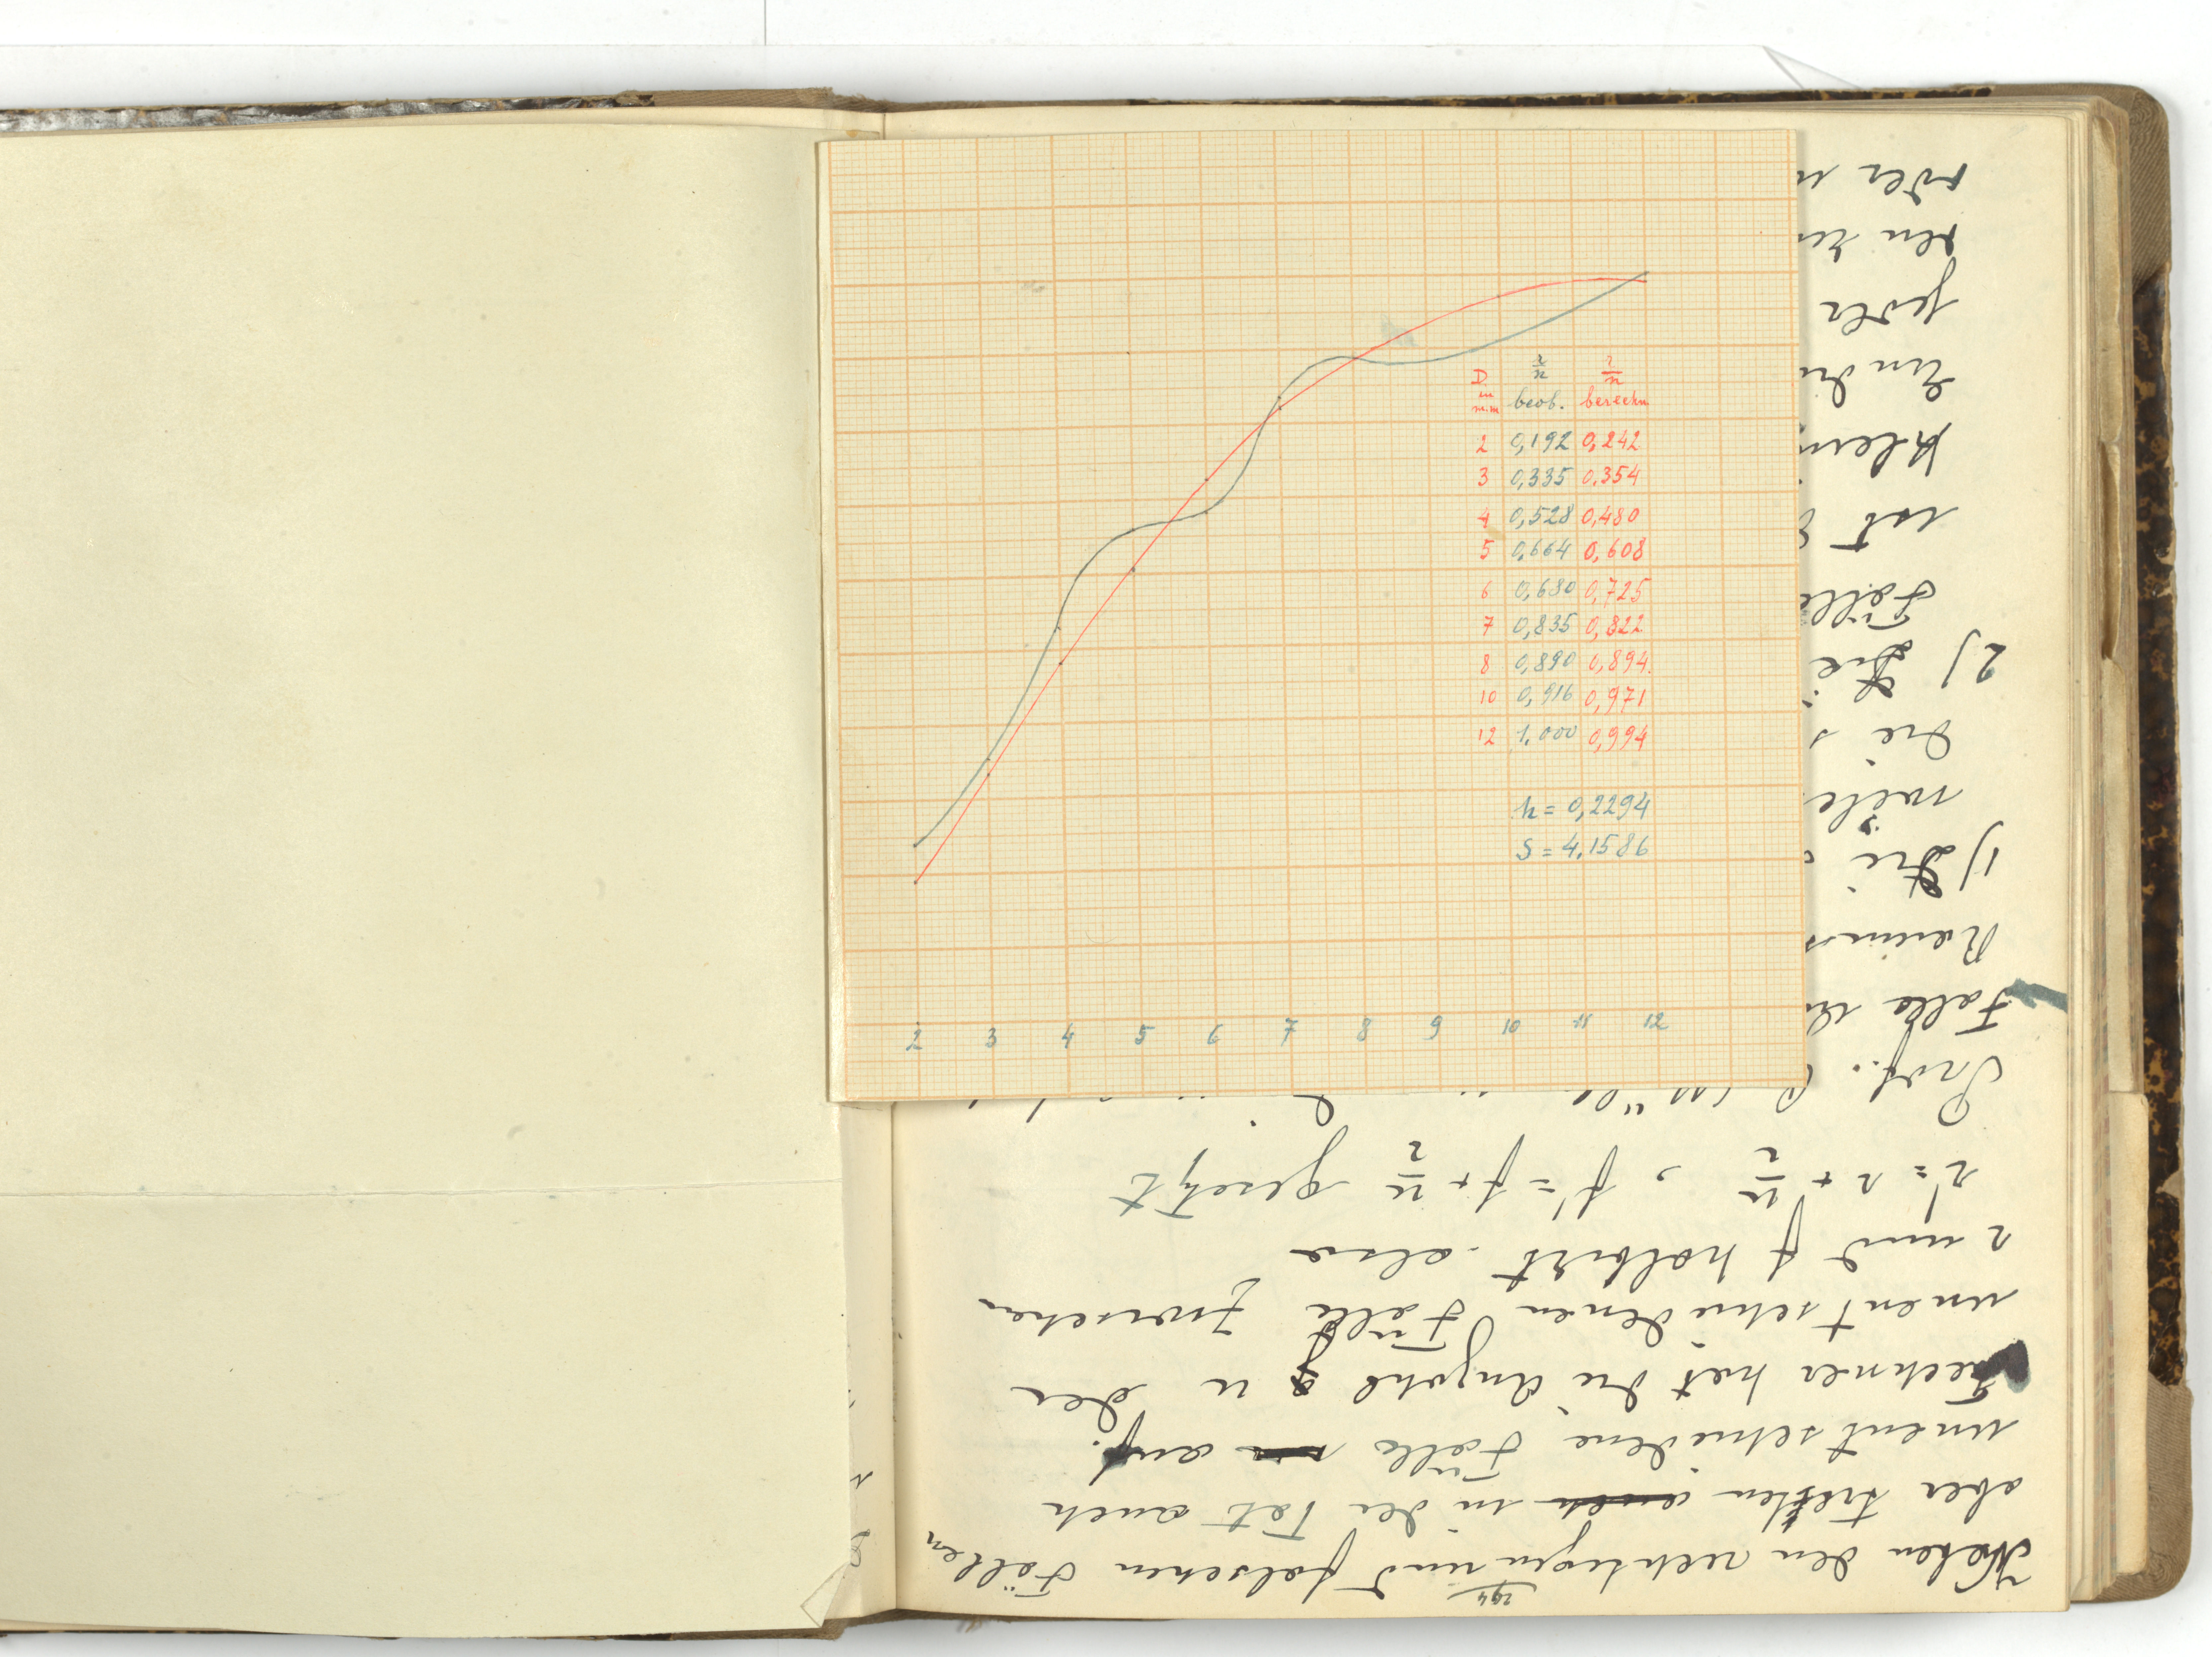 D. in mm r/n beob. r/n berechn.
2 0,192 0,242
3 0,335 0,354
4 0,528 0,480
5 0,664 0,608
6 0,680 0,725
7 0,835 0,822
8 0,890 0,894
10 0,916 0,971
12 1,000 0,994
h = 0,2294
S = 4,1586
2 3 4 5 6 7 8 9 10 11 12
294
Neben den richtigen und falschen Fällen
aber treffen auch in der Tat auch
unentschiedene Fälle auf.
Fechner hat die Anzahl u der
unentschiedenen Fälle zwischen
r und f halbirt, also
r' = r + u/2, f' = f + u/2 gesetzt
Prof.
Falle
1) Die
die
2) Die
Fälle
ist
jeder
oder